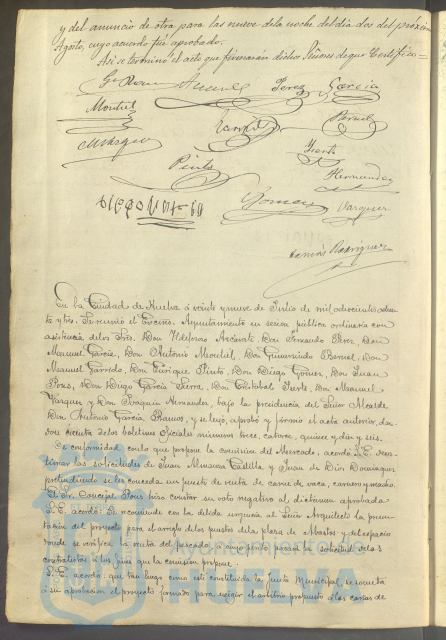 y del anuncio de otra para las nueve de la noche del dia dos del próximo
Agosto, cuyo acuerdo fué aprobado.
Asi se terminó el acto que firmarán dichos Señores de que Certifico =
Garcia
Perez
Montiel
Garrido
Bernel
Pinto
Hernandez
Gomez
Vazquez
Rodriguez
En la Ciudad de Huelva á veinte y nueve de Julio de mil ochocientos ochen-
ta y tres. Se reunió el Excmo. Ayuntamiento en sesion pública ordinaria con
asistencia de los Sres. Don Ildefonso Don Fernando Perez, Don
Manuel Garcia, Don Antonio Montiel, Don Gumersindo Bernel, Don
Manuel Garrido, Don Enrique Pinto, Don Diego Gomez, Don Juan
Don Diego Garcia Don Cristobal Don Manuel
Vazquez y Don Joaquin Hernandez, bajo la presidencia del Señor Alcalde
Don Antonio Garcia Ramos, y se leyó, aprobó y firmó el acta anterior, dan-
dose cuenta de los boletines Oficiales números trece, catorce, quince y diez y seis.
De conformidad con lo que propone la comision del Mercado, acordó S.E.
las solicitudes de Juan Castilla y Juan de Dios Dominguez
pretendiendo se les conceda un puesto de venta de carne de vaca, carnero y macho.
El Sr. Concejal hizo constar su voto negativo al dictamen aprobado
S.E. acordó: Se recomiende con la debida urgencia al Señor Arquitecto la presen-
tacion del proyecto para el arreglo de los puestos de la plaza de Abastos y del espacio
donde se verifica la venta del pescado, á cuyo efecto pasará la solicitud de los
contratistas á los fines que la comision propone.
S.E. acordó: que tan luego como esté constituida la Junta Municipal se someta
á su aprobacion el proyecto formado para exigir el arbitrio propuesto á las casas de
Ayuntamiento de
HUELVA